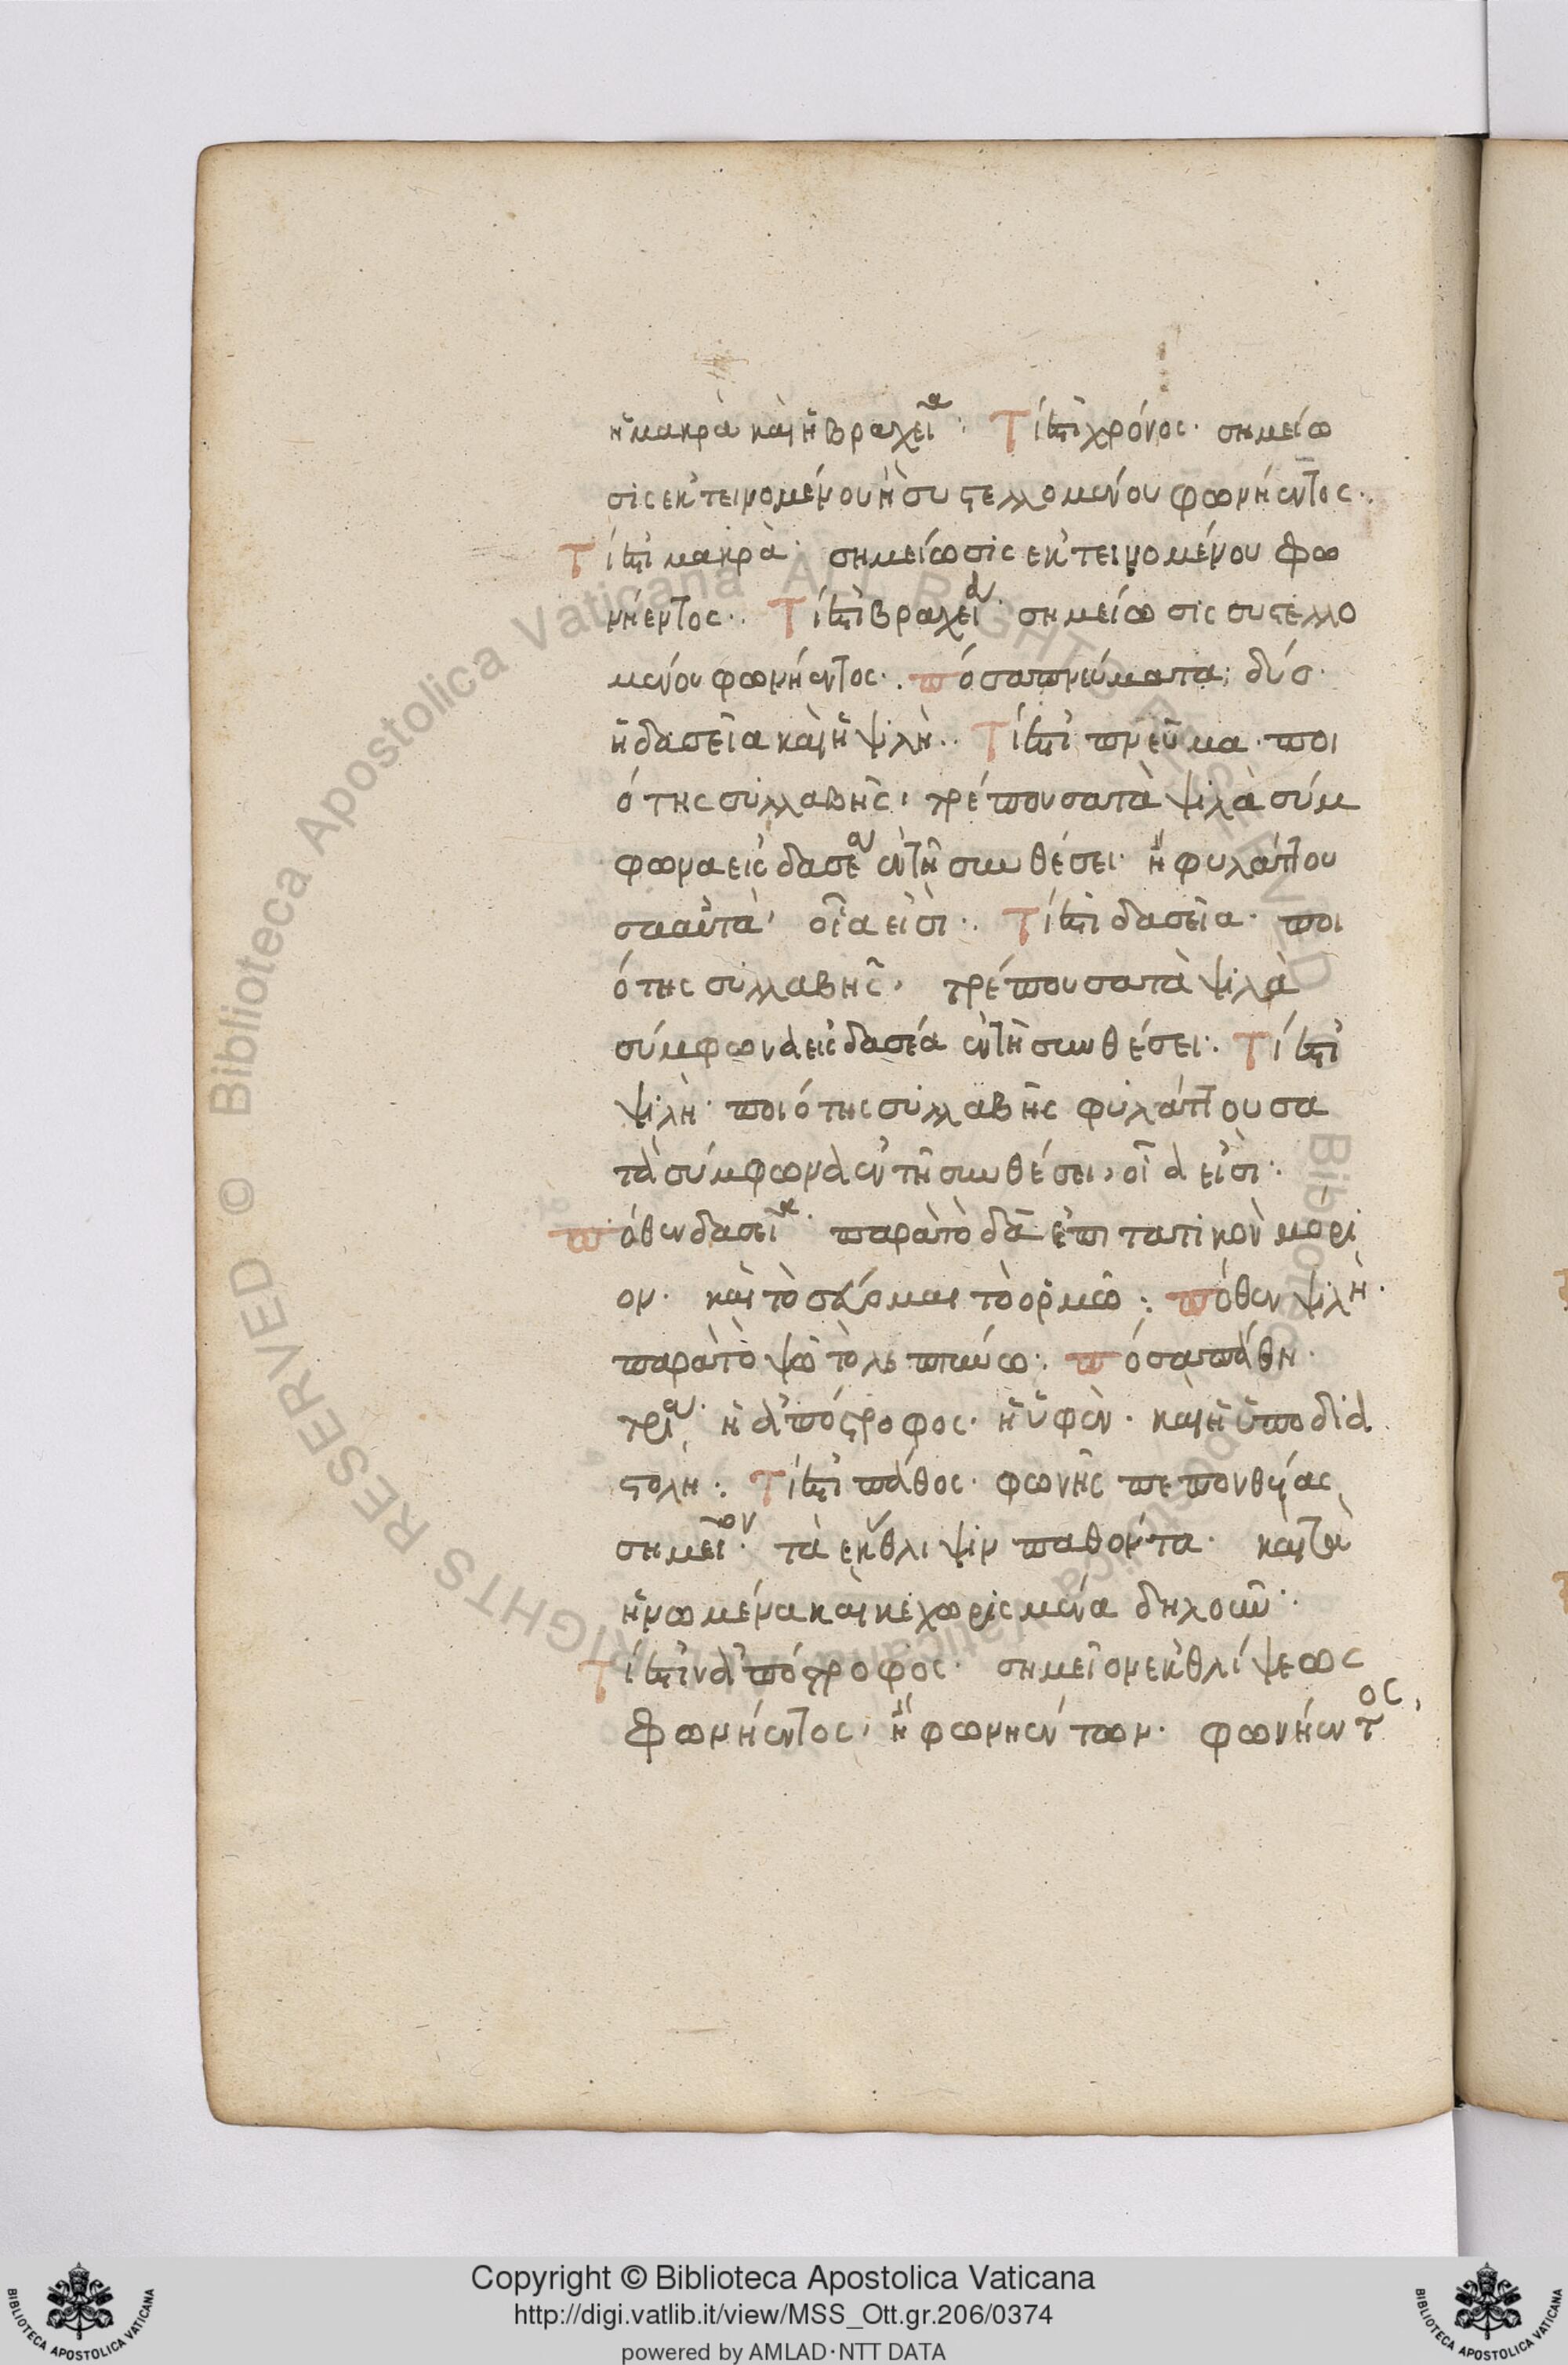 ἡ μακρὰ καὶ ἡ βραχεῖα: Τί ἐστὶ χρόνος· σημείω
σις ἐκτεινομένου ἢ συστελλομένου φωνήεντος·.
Τί ἐστι μακρὰ· σημείωσις ἐκτεινομένου φω
νήεντος·. Τί ἐστὶ βραχεῖα· σημείωσις συστελλο
μένου φωνήεντος·. πόσα πνεύματα· δύο·
ἡ δασεῖα καὶ ἡ ψιλὴ·. Τί ἐστι πνεῦμα· ποι
ότης συλλαβῆς, τρέπουσα τὰ ψιλὰ σύμ
φωνα εἰς δασέα ἐν τῇ συνθέσει· ἢ φυλάττου
σα αὐτὰ, οἷα εἰσι·. Τί ἐστὶ δασεῖα· ποι
ότης συλλαβῆς, τρέπουσα τὰ ψιλὰ
σύμφωνα εἰς δασέα ἐν τῇ συνθέσει·. Τί ἐστι
ψιλὴ· ποιότης συλλαβῆς φυλάττουσα
τὰ σύμφωνα ἐν τῇ συνθέσει, οἷα εἰσὶ·.
πόθεν δασεῖα· παρὰ τὸ δα ἐπιτατικὸν μόρι
ον· καὶ τὸ σεύομαι τὸ ὁρμῶ: πόθεν ψιλὴ·
παρὰ τὸ ψῶ τὸ λεπτύνω: πόσα πάθη·
τρία· ἡ ἀπόστροφος· ἡ ὑφὲν· καὶ ἡ ὑποδια
στολὴ: Τί ἐστι πάθος· φωνῆς πεπονθυίας
σημεῖον· τὰ ἔκθλιψιν παθόντα· καὶ τὰ
ἡνωμένα καὶ κεχωρισμένα δηλοῦν·.
Τί ἐστιν ἀπόστροφος· σημεῖον ἐκθλίψεως
φωνήεντος, ἢ φωνηέντων· φωνήεντος,
Copyright © Biblioteca Apostolica Vaticana
http://digi.vatlib.it/view/MSS_Ott.gr.206/0374
powered by AMLAD·NTT DATA